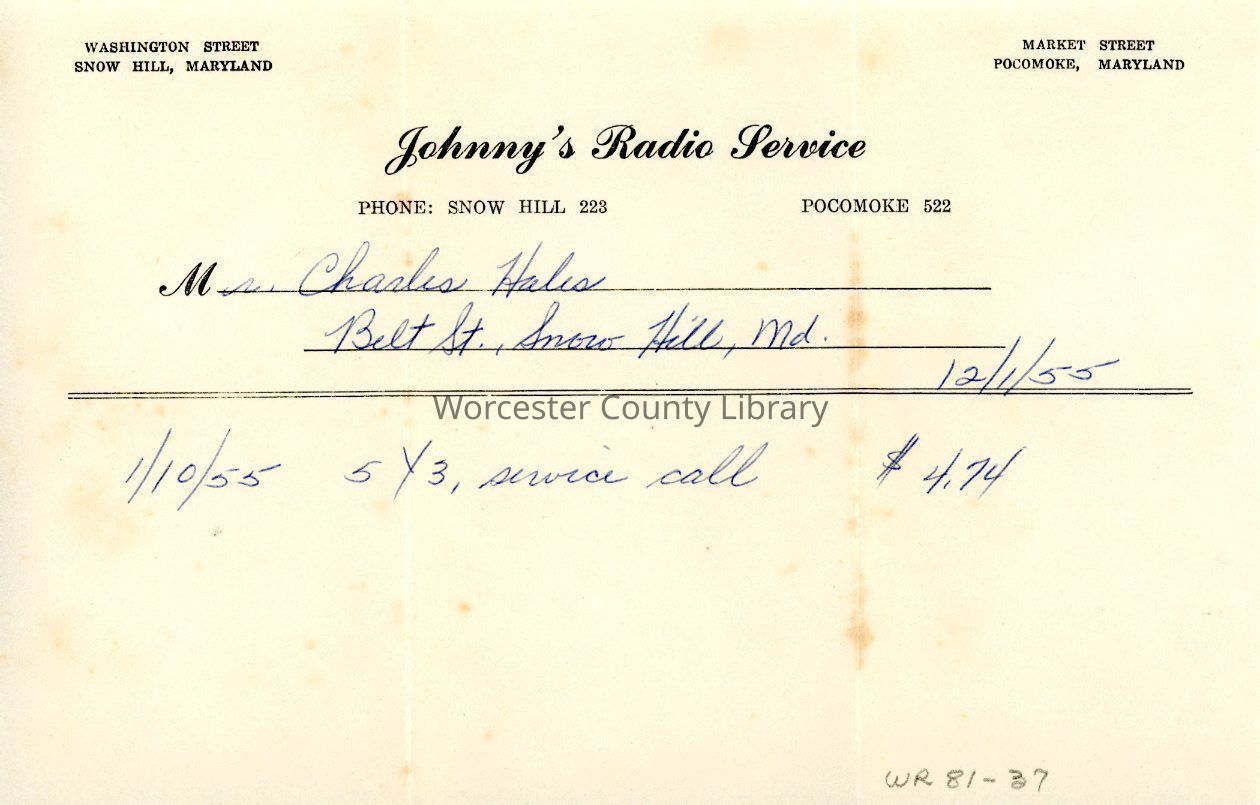 WASHINGTON STREET
SNOW HILL, MARYLAND
MARKET STREET
POCOMOKE, MARYLAND
Johnny's Radio Service
PHONE: SNOW HILL 223 POCOMOKE 522
Mr. Charles Hales
Belt St., Snow Hill, Md.
12/1/55
Worcester County Library
1/10/55 5Y3, service call $4.74
WR 81-37